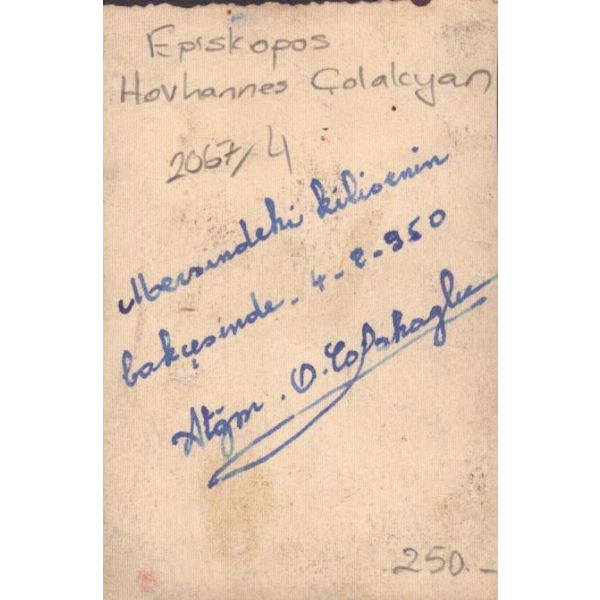 Episkopos
Hovhannes Çolakyan
2067/4
Mersindeki kilisenin
bahçesinde - 4-2-950
Atğm. O.
250.-